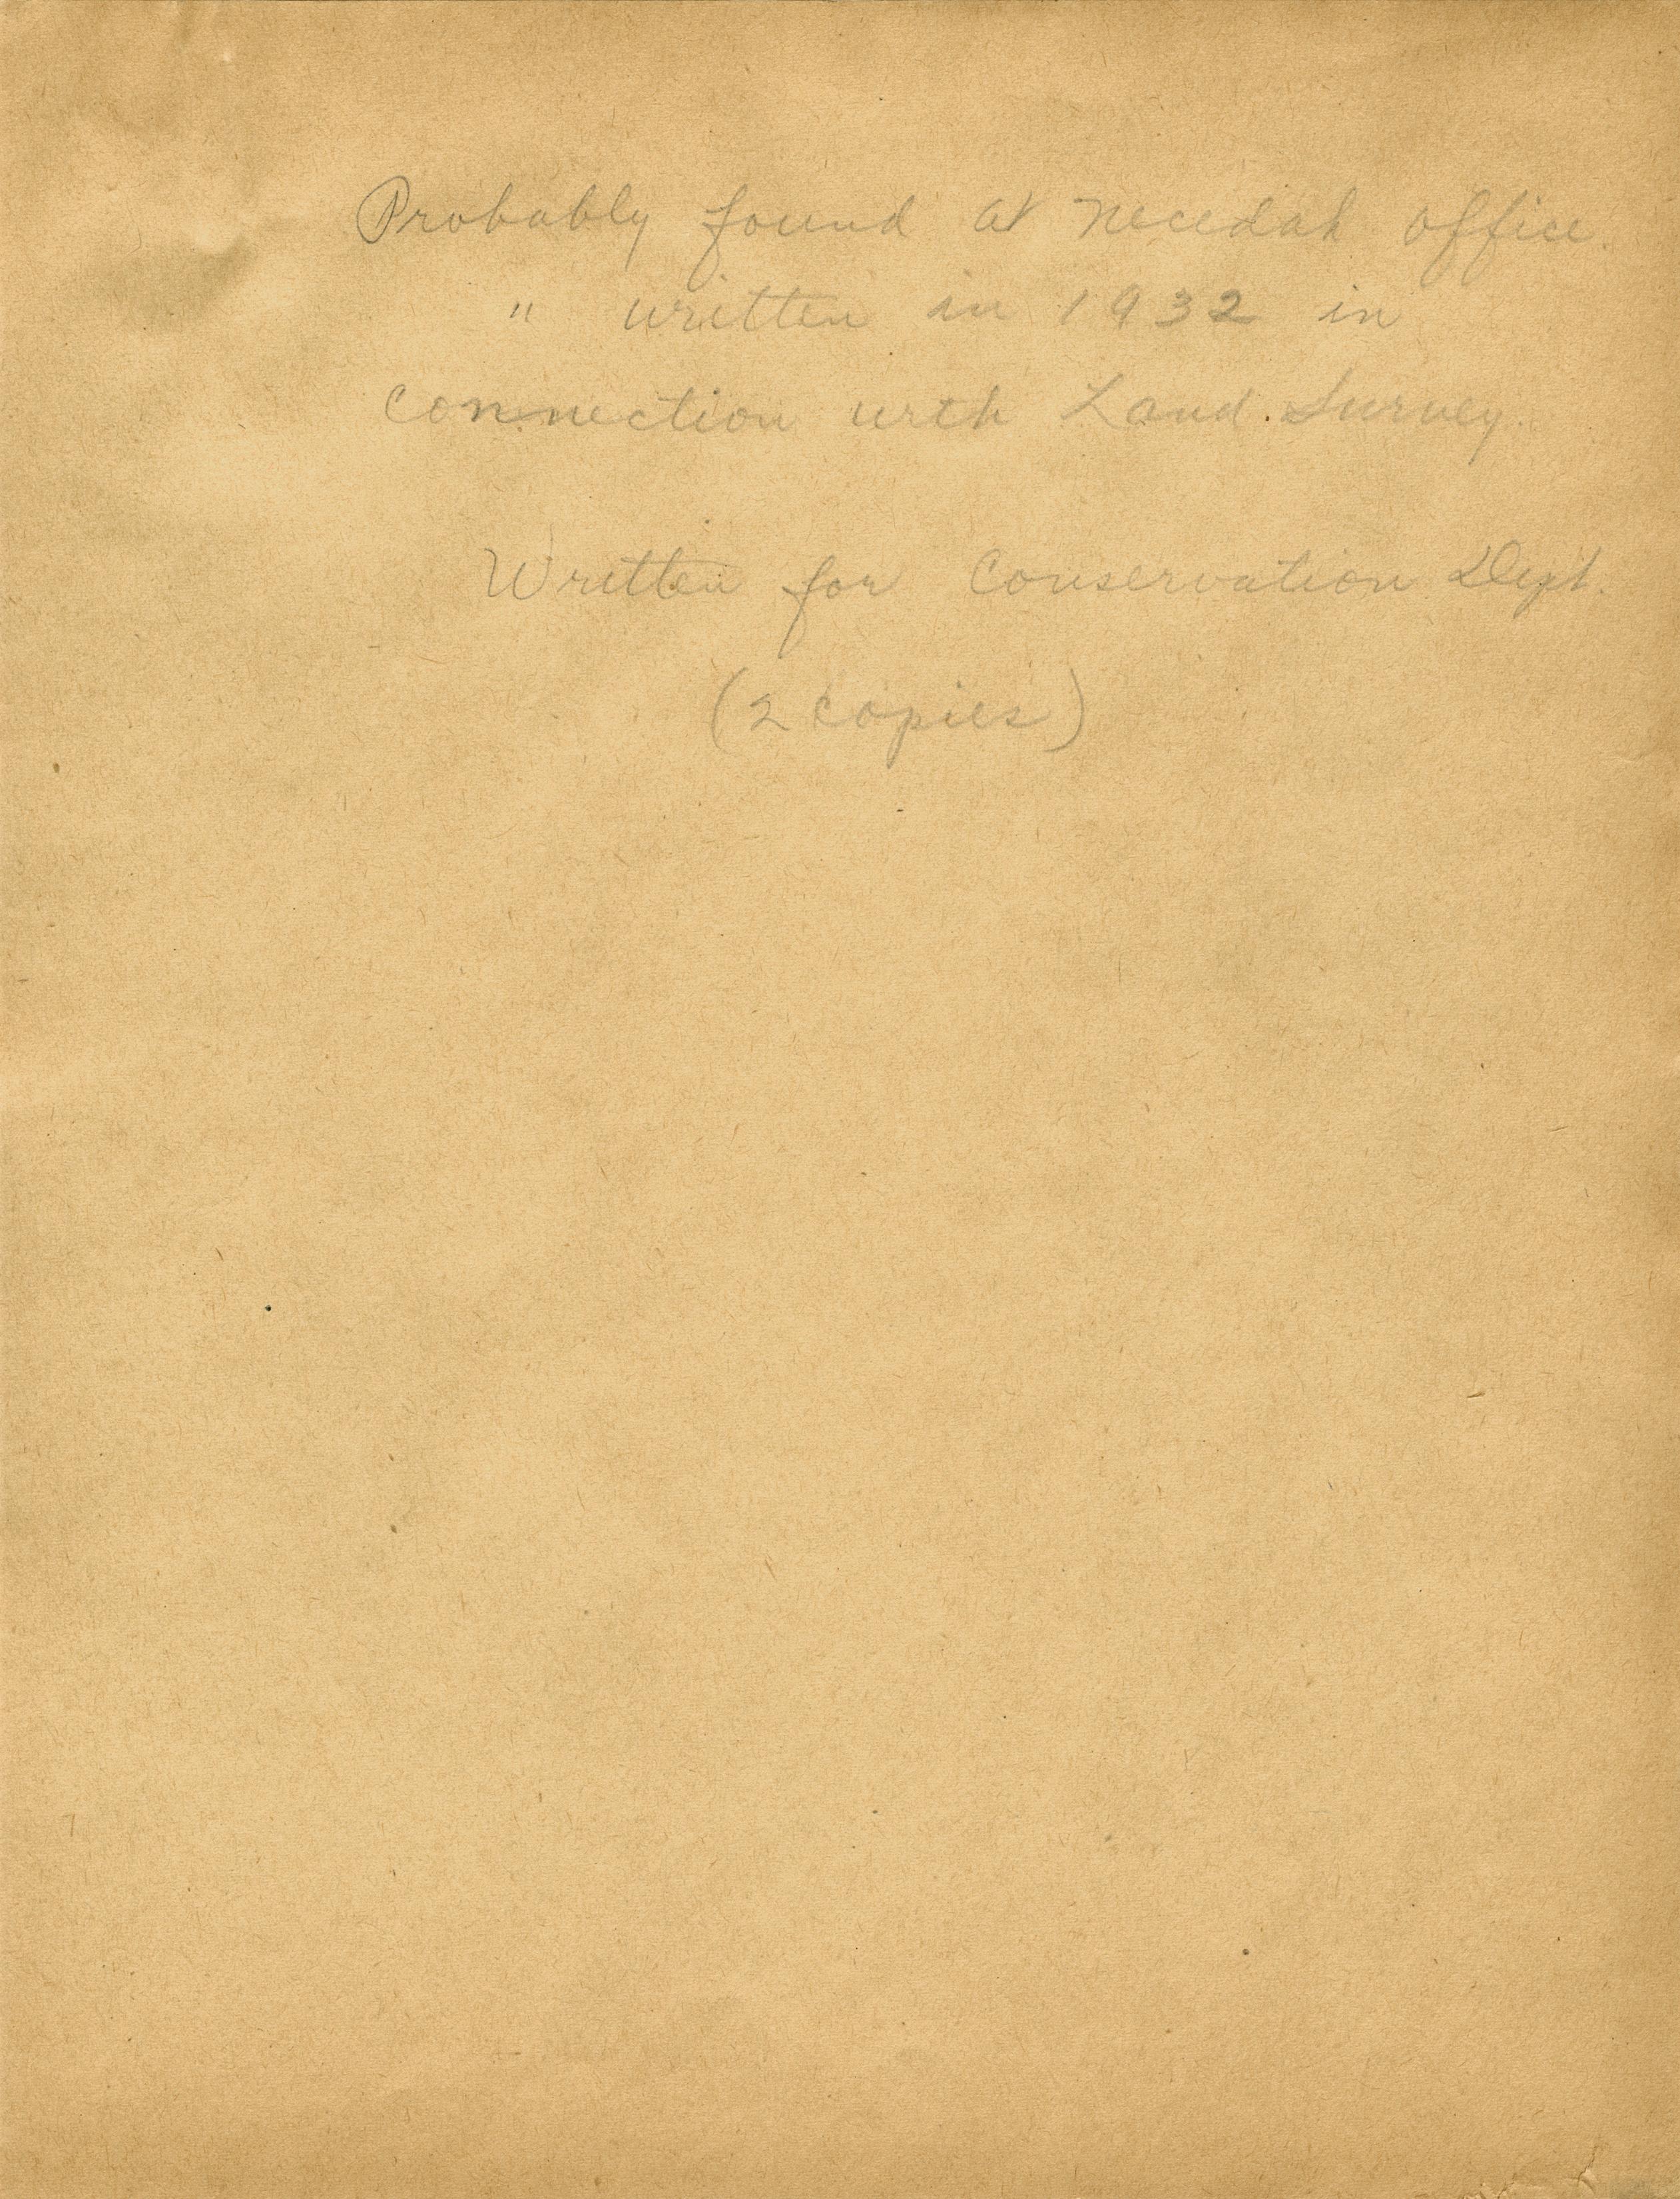 Probably found at Necedah office.
" written in 1932 in
connection with Land Survey.
Written for Conservation Dept.
(2 copies)